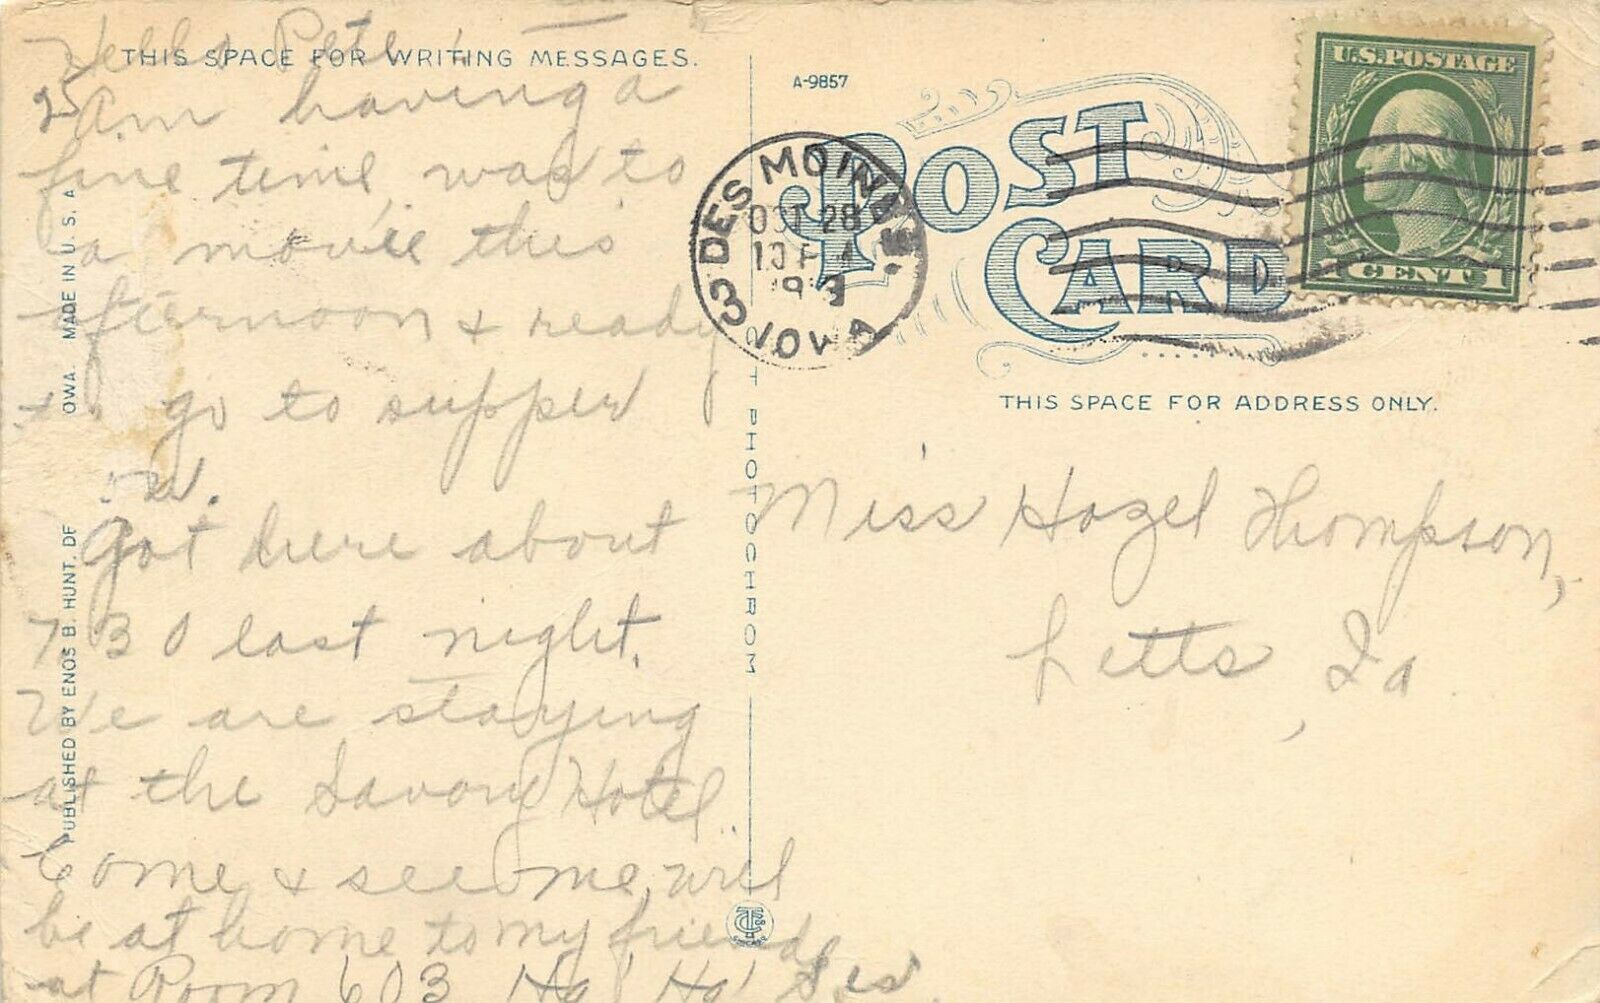 THIS SPACE FOR WRITING MESSAGES.
Hello Pete!
Am having a
fine time was to
a movie this
afternoon & ready
to go to supper
Got here about
7:30 last night.
We are staying
at the Savory Hotel.
Come & see me, will
be at home to my friends
at Room 603 Ha! Ha!
PUBLISHED BY ENOS B. HUNT, DE
OWA. MADE IN U. S. A
PHOTOCHROM
A-9857
POST CARD
DES MOINES
OCT 28
IOWA
3
U.S. POSTAGE
1 CENT 1
THIS SPACE FOR ADDRESS ONLY.
Miss Hazel Thompson,
Letts, Ia
CHICAGO